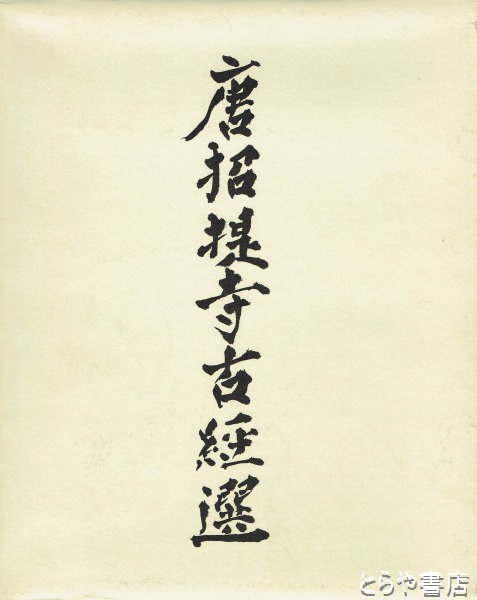 唐招提寺古経選
とらや書店